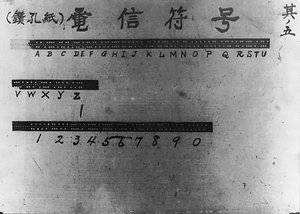 (鑽孔紙) 電信符号 其ノ五
A B C D E F G H I J K L M N O P Q R S T U
V W X Y Z
1 2 3 4 5 6 7 8 9 0